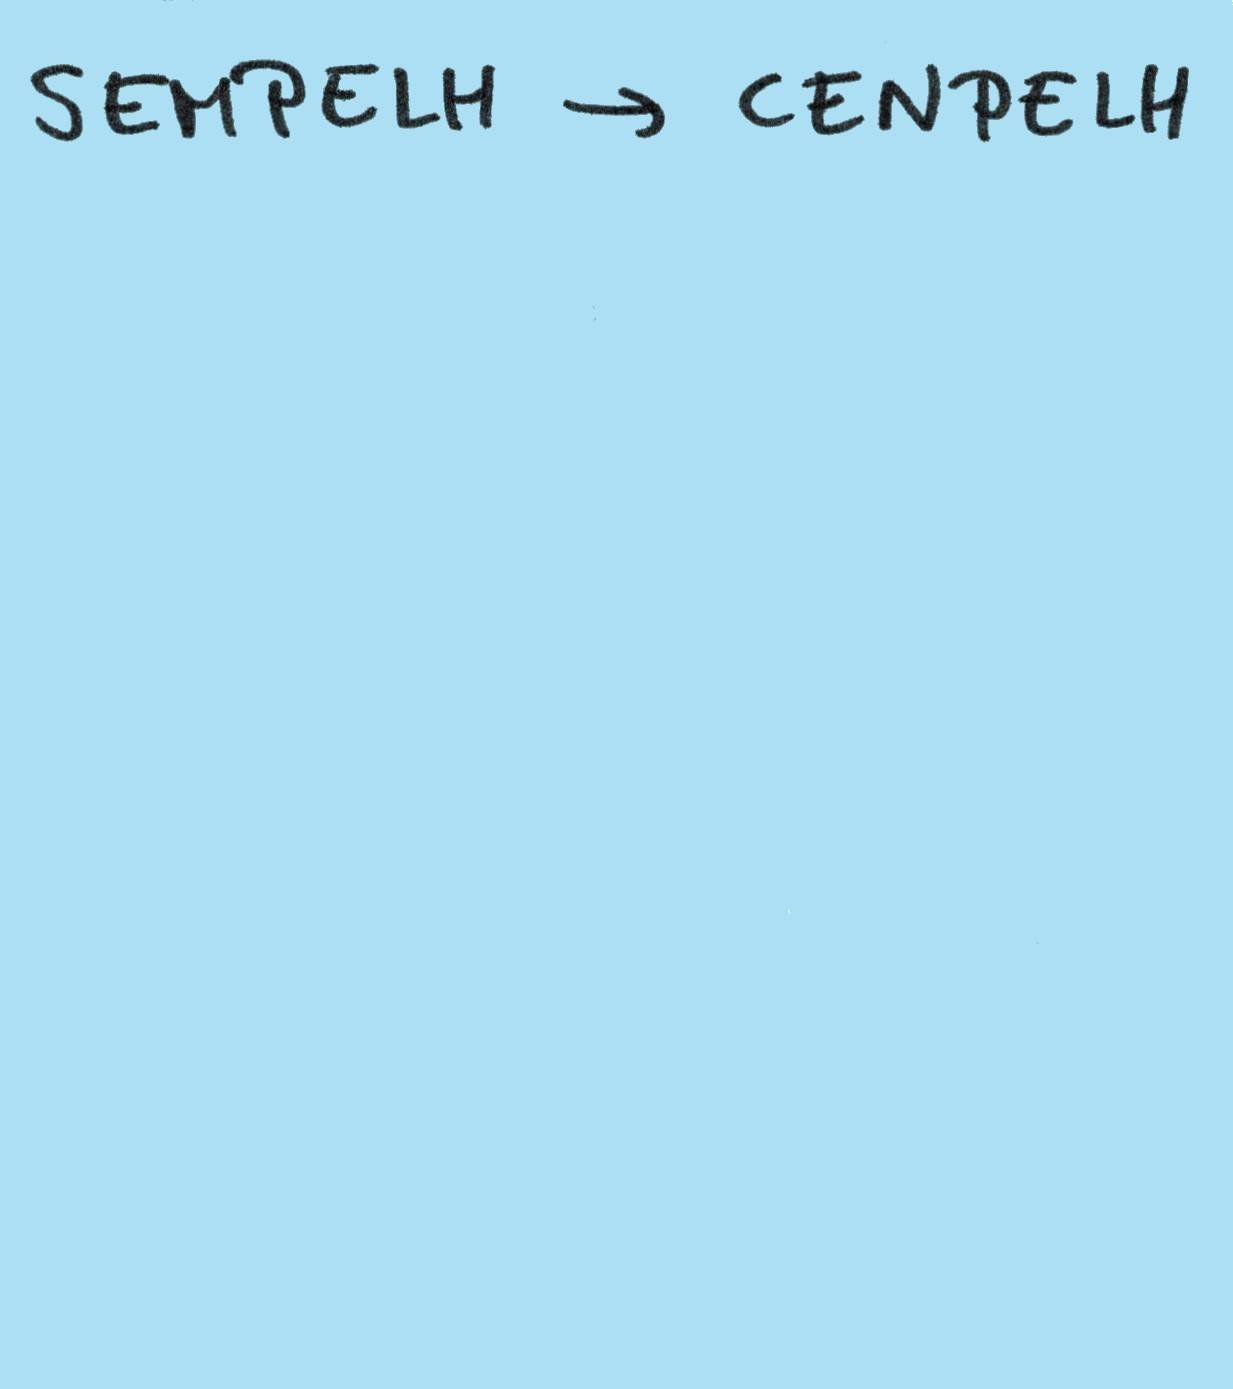 SEMPELH → CENPELH